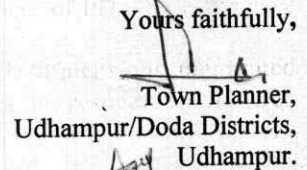 Yours faithfully,
Town Planner,
Udhampur/Doda Districts,
Udhampur.